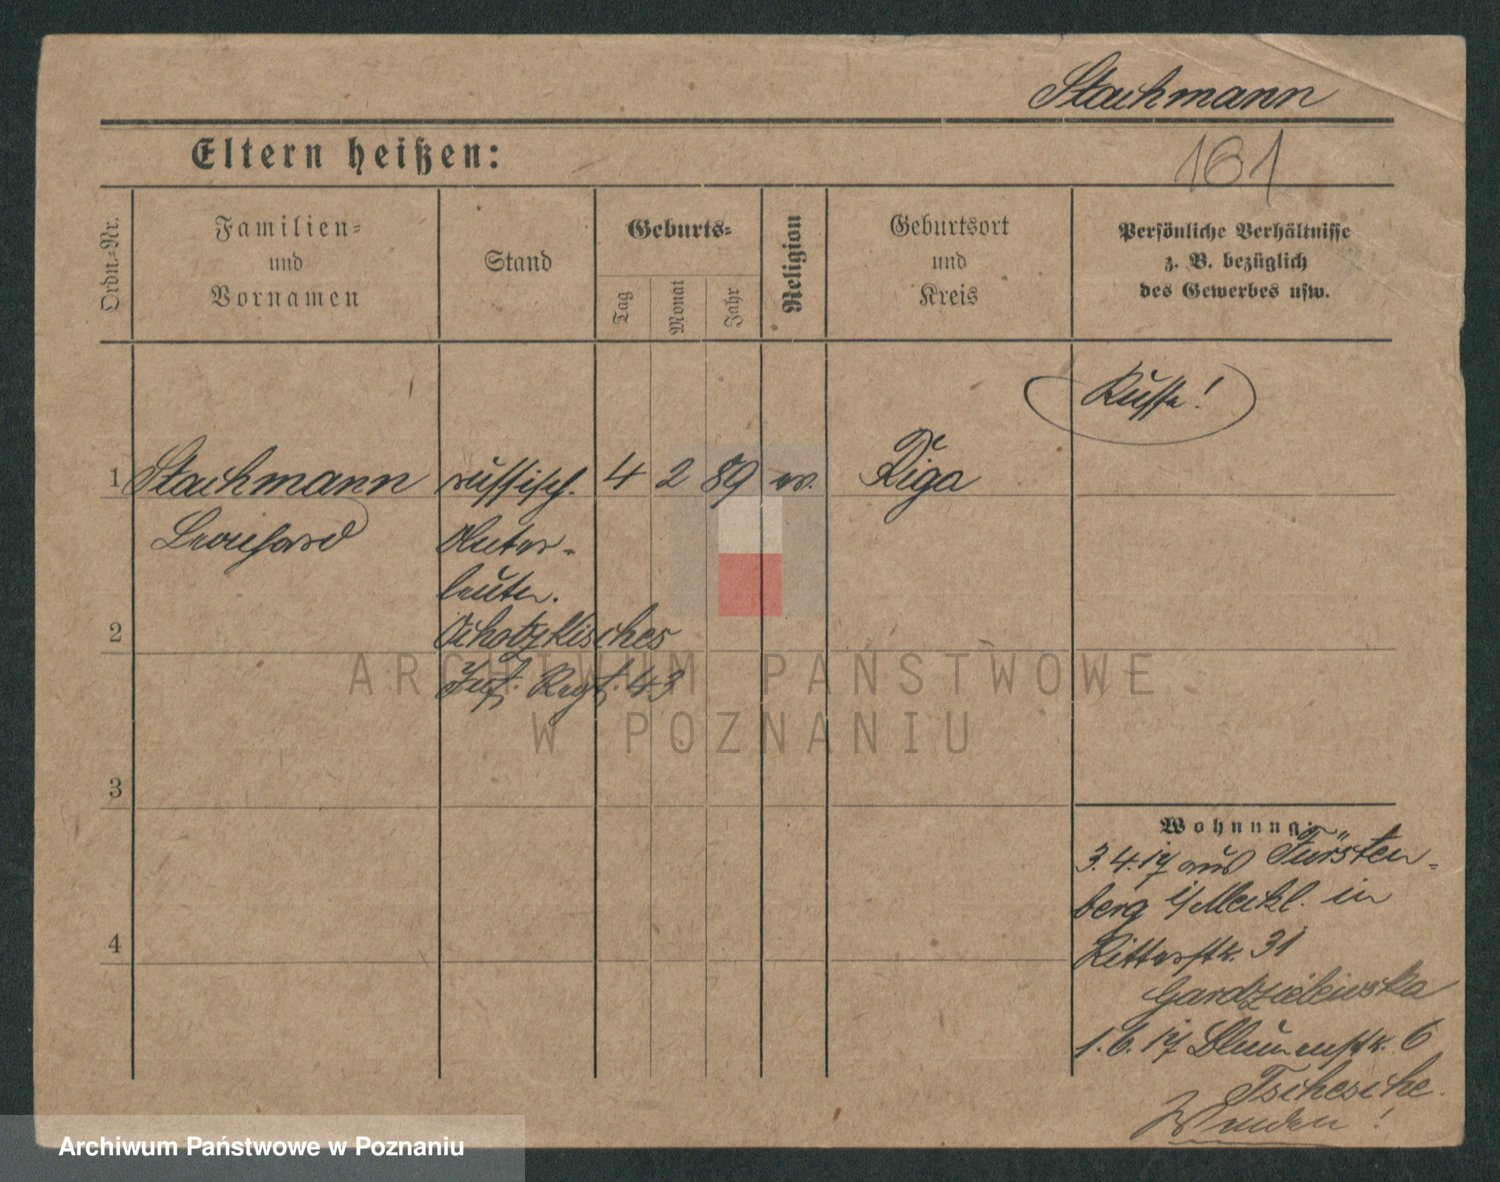 Stachmann
161
Eltern heißen:
Ordn=Nr.
Familien=
und
Vornamen
Stand
Geburts=
Tag
Monat
Jahr
Religion
Geburtsort
und
Kreis
Persönliche Verhältnisse
z. B. bezüglich
des Gewerbes usw.
Russe!
1 Stachmann russisch. 4 2 89 ev. Riga
Leonhard Unter-
leutn.
2 Ochotzkisches
Inf. Regt. 43
3
4
Wohnung:
3.4.17 aus Fürsten-
berg i/Meckl. in
Ritterstr. 31
Gardzielewska
1.6.17 Blumenstr. 6
Tschesche.
Wenden!
ARCHIWUM PAŃSTWOWE
W POZNANIU
Archiwum Państwowe w Poznaniu